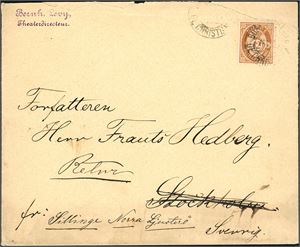 Bernh. Levy,
Theaterdirecteur.
Forfatteren
Herr Frantz Hedberg.
Retur
Stockholm
fr: Sillinge Norra Ljusterö
Sverrig.